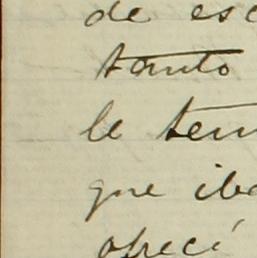 de esc
tanto
le tem
que iba
ofrecí